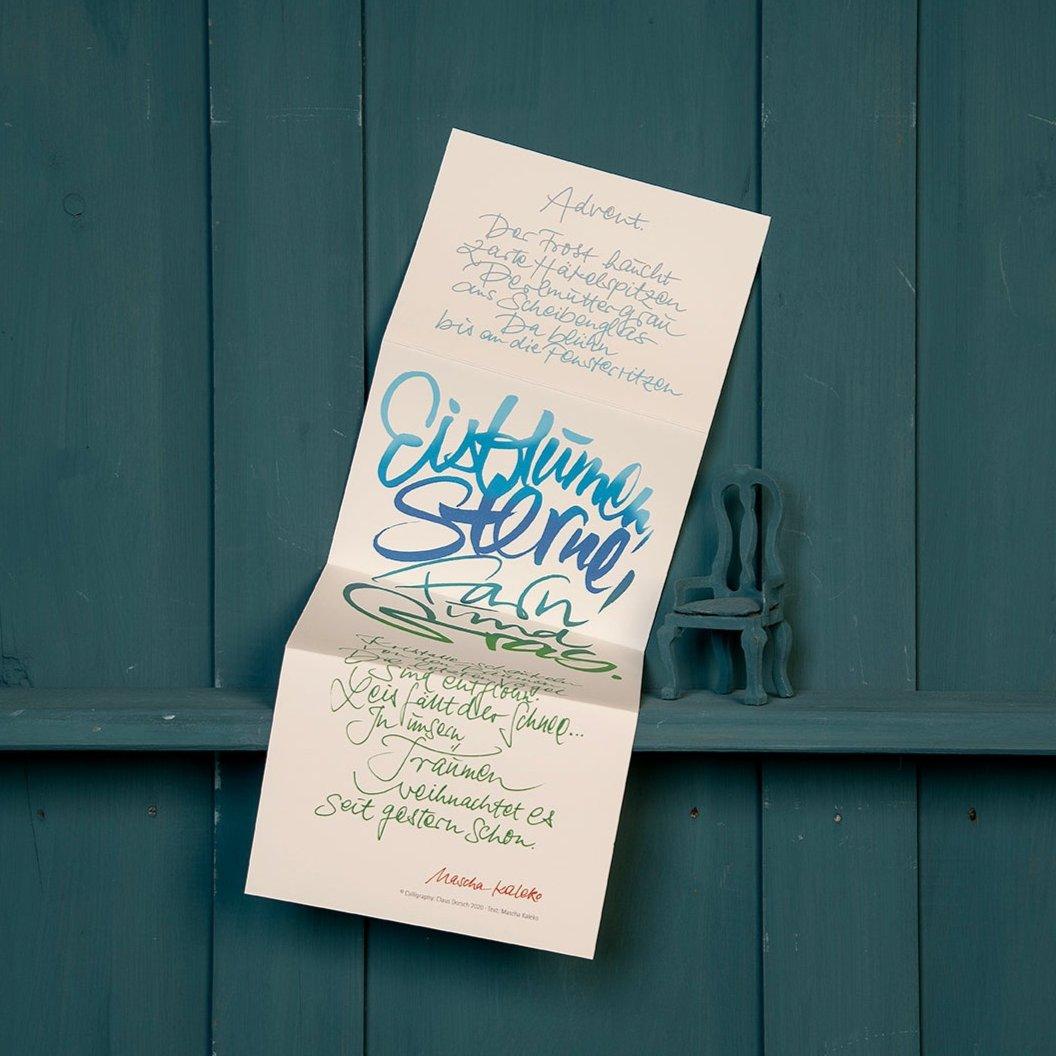 Advent.
Der Frost haucht
zarte Häkelspitzen
Perlmuttergrau
ans Scheibenglas
Da blühn
bis an die Fensterritzen
Eisblumen,
Sterne,
Farn
und
Gras.
Kristalle schaukeln
Von den Bäumen
Die letzten Vögel
Sind entflohn.
Leis fällt der Schnee...
In unsern
Träumen
weihnachtet es
seit gestern schon.
Mascha Kaléko
© Calligraphy: Claus Dorsch 2020 · Text: Mascha Kaléko